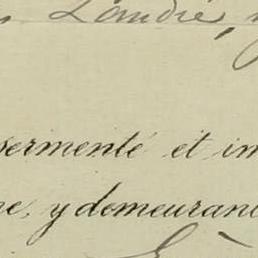 Landié,
sermenté et im
ne, y demeurant